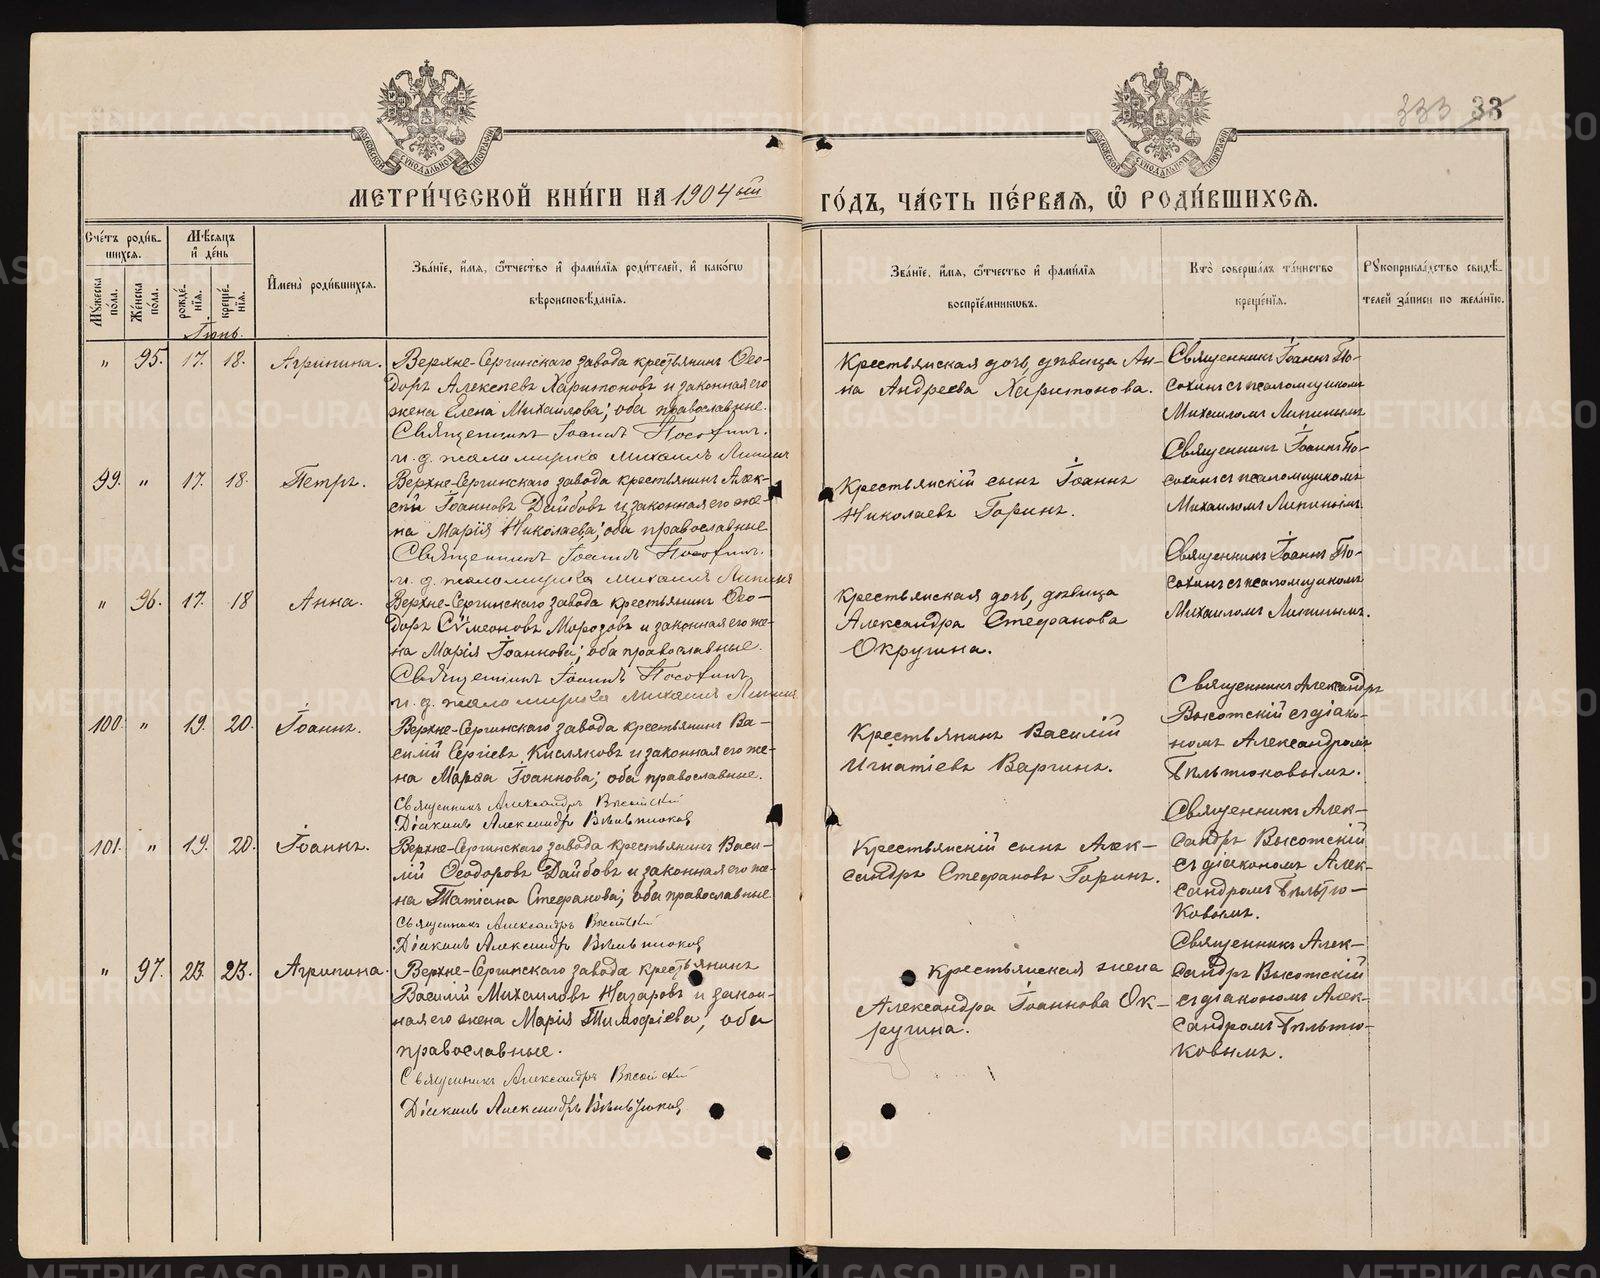 333 33
МОСКОВСКОЙ СѴНОДАЛЬНОЙ ТИПОГРАФІИ
МОСКОВСКОЙ СѴНОДАЛЬНОЙ ТИПОГРАФІИ
МЕТРИ́ЧЕСКОЙ КНИ́ГИ НА 1904ый ГО́ДЪ, ЧА́СТЬ ПЕ́РВАѦ, Ѽ РОДИ́ВШИХСѦ.
Сче́тъ роди́в-
шихсѧ.
Мꙋ́жеска по́ла.
Же́нска по́ла.
Мѣ́сѧцъ
и҆ де́нь
рожде́-
нїѧ.
креще́-
нїѧ.
И҆мена̀ роди́вшихсѧ.
Зва́нїе, и҆́мѧ, ѻ҆́тчество и҆ фами́лїѧ роди́телей, и҆ како́гѡ
вѣроисповѣ́данїѧ.
Зва́нїе, и҆́мѧ, ѻ҆́тчество и҆ фами́лїѧ
воспрїе́мникѡвъ.
Кто̀ соверша́лъ та́инство
креще́нїѧ.
Рꙋкоприкла́дство свидѣ́-
телей за́писи по жела́нїю.
Іюнь.
" 95. 17. 18. Агрипина.
Верхне-Сергинскаго завода крестьянинъ Ѳео-
доръ Алексѣевъ Харитоновъ и законная его
жена Елена Михаилова; оба православные.
Священникъ Іоаннъ Посохинъ.
и. д. псаломщика Михаилъ Липинъ
Крестьянская дочь, дѣвица Ан-
на Андреева Харитонова.
Священникъ Іоаннъ По-
сохинъ съ псаломщикомъ
Михаиломъ Липинымъ
99. " 17. 18. Петръ.
Верхне-Сергинскаго завода крестьянинъ Алек-
сѣй Іоанновъ Дайбовъ и законная его же-
на Марія Николаева; оба православные
Священникъ Іоаннъ Посохинъ.
и. д. псаломщика Михаилъ Липинъ
Крестьянскій сынъ Іоаннъ
Николаевъ Горинъ.
Священникъ Іоаннъ По-
сохинъ съ псаломщикомъ
Михаиломъ Липинымъ.
" 96. 17. 18 Анна.
Верхне-Сергинскаго завода крестьянинъ Ѳео-
доръ Сѵмеоновъ Морозовъ и законная его же-
на Марія Іоаннова; оба православные.
Священникъ Іоаннъ Посохинъ
и. д. псаломщика Михаилъ Липинъ
Крестьянская дочь, дѣвица
Александра Стефанова
Округина.
Священникъ Іоаннъ По-
сохинъ съ псаломщикомъ
Михаиломъ Липинымъ.
100. " 19. 20. Іоаннъ.
Верхне-Сергинскаго завода крестьянинъ Ва-
силій Сергіевъ Кисляковъ и законная его же-
на Марѳа Іоаннова; оба православные.
Священникъ Александръ Высотскій
Діаконъ Александръ Бѣльтюковъ
Крестьянинъ Василій
Игнатіевъ Варгинъ.
Священникъ Александръ
Высотскій съ діако-
номъ Александромъ
Бѣльтюковымъ.
101. " 19. 20. Іоаннъ.
Верхне-Сергинскаго завода крестьянинъ Васи-
лій Ѳеодоровъ Дайбовъ и законная его же-
на Татіана Стефанова; оба православные
Священникъ Александръ Высотскій
Діаконъ Александръ Бѣльтюковъ
Крестьянскій сынъ Алек-
сандръ Стефановъ Горинъ.
Священникъ Алек-
сандръ Высотскій
съ діакономъ Алек-
сандромъ Бѣльтю-
ковымъ.
" 97. 23. 23. Агрипина.
Верхне-Сергинскаго завода крестьянинъ
Василій Михаиловъ Назаровъ и закон-
ная его жена Марія Тимофіева; оба
православные.
Священникъ Александръ Высотскій
Діаконъ Александръ Бѣльтюковъ
Крестьянская жена
Александра Іоаннова Ок-
ругина.
Священникъ Алек-
сандръ Высотскій
съ діакономъ Алек-
сандромъ Бѣльтю-
ковымъ.
METRIKI.GASO-URAL.RU